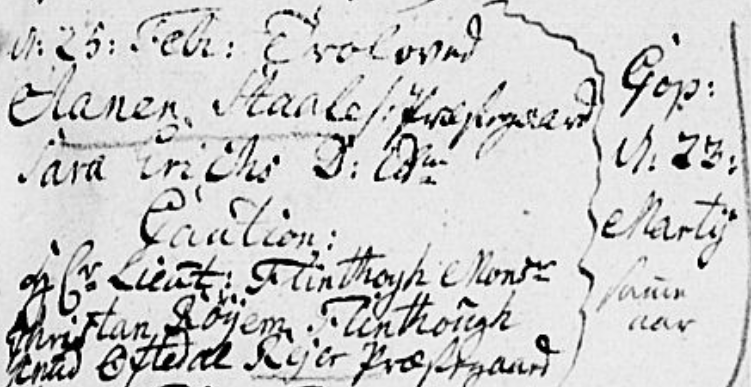 d: 25: Febr: Troloved
Aanen Staales: Præstegaard
Sara Erichs D:
Caution:
Hr Lieut: Flinthough Monsr
Christian Röyem Flinthough
Knud Eftedal Rejer Præstegaard
Cop:
d: 23:
Martij
samme
aar